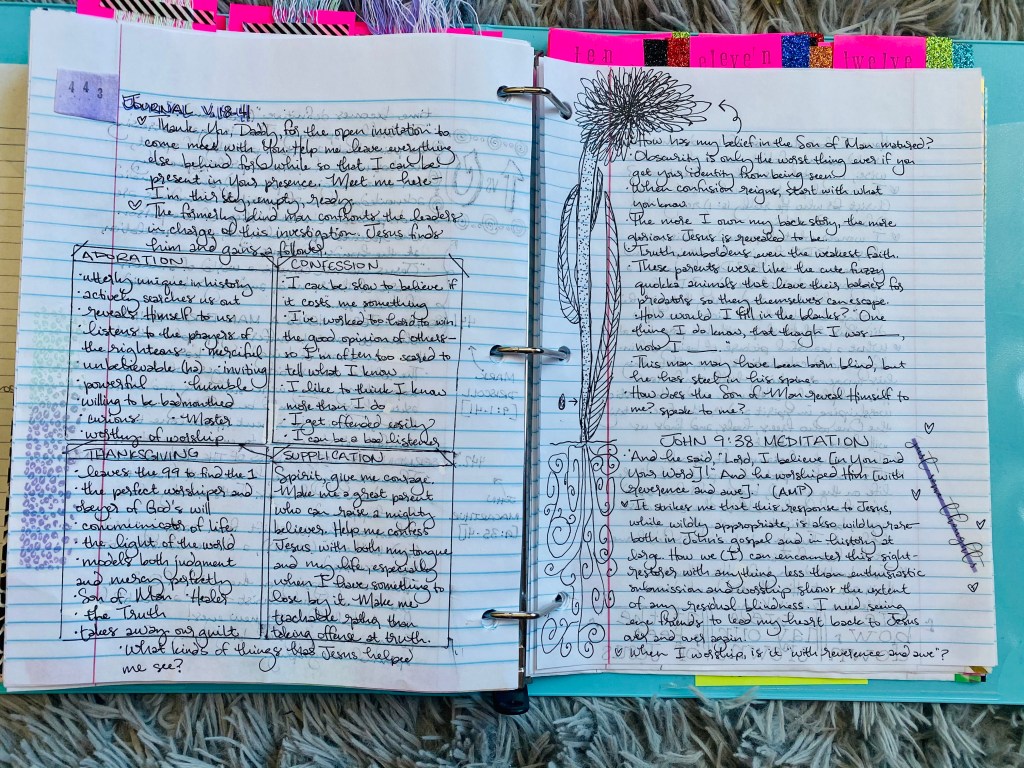 ten
eleven
twelve
443
JOURNAL V. 18-41
Thank You, Daddy, for the open invitation to
come meet with You. Help me leave everything
else behind for a while so that I can be
present in Your presence. Meet me here-
I'm thirsty, empty, ready.
The formerly blind man confronts the leaders
in charge of this investigation. Jesus finds
him and gains a follower.
ADORATION
• utterly unique in history
• actively searches us out
• reveals Himself to us
• listens to the prayers of
the righteous • merciful
unbelievable (ha) • inviting
• powerful • humble
willing to be badmouthed
• curious • Master
• worthy of worship
CONFESSION
• I can be slow to believe if
it costs me something
• I've worked too hard to win
the good opinion of others-
so I'm often too scared to
tell what I know
• I like to think I know
more than I do
• I get offended easily
• I can be a bad listener
THANKSGIVING
• leaves the 99 to find the 1
• the perfect worshiper and
obeyer of God's will
• communicator of life
• the light of the world
• models both judgment
and mercy perfectly
Son of Man • Healer
• the Truth
• takes away our guilt
SUPPLICATION
Spirit, give me courage.
Make me a great parent
who can raise a mighty
believer. Help me confess
Jesus with both my tongue
and my life, especially
when I have something to
lose by it. Make me
teachable rather than
taking offense at truth.
• What kinds of things has Jesus helped
me see?
• How has my belief in the Son of Man matured?
• Obscurity is only the worst thing ever if you
get your identity from being seen.
• When confusion reigns, start with what
you know.
The more I own my back story, the more
glorious Jesus is revealed to be.
Truth emboldens even the weakest faith.
• These parents were like the cute fuzzy
quokka animals that leave their babies for
predators so they themselves can escape.
• How would I fill in the blanks? "One
thing I do know, that though I was ____,
now I ____."
• This man may have been born blind, but
he has steel in his spine.
• How does the Son of Man reveal Himself to
me? speak to me?
JOHN 9:38 MEDITATION
• "And he said, "Lord, I believe [in You and
Your word]!" And he worshiped Him [with
reverence and awe]." (AMP)
It strikes me that this response to Jesus,
while wildly appropriate, is also wildly rare-
both in John's gospel and in history at
large. How we (I) can encounter this sight-
restorer with anything less than enthusiastic
submission and worship shows the extent
of any residual blindness. I need seeing
eye friends to lead my heart back to Jesus
over and over again.
When I worship, is it "with reverence and awe"?